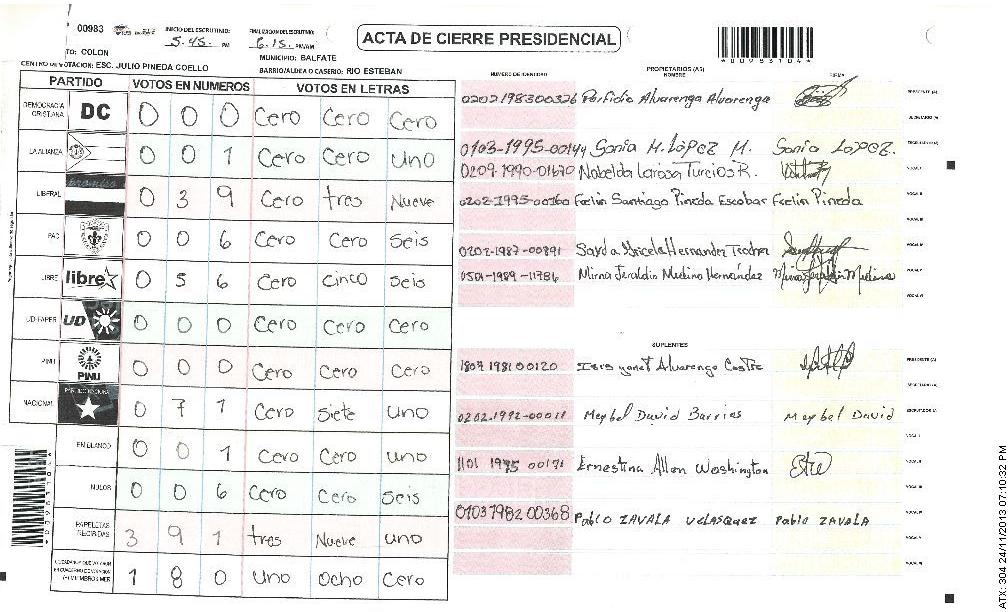 00983 INICIO DEL ESCRUTINIO: 5:45 PM FINALIZACION DEL ESCRUTINIO: 6:15 PM/AM
ACTA DE CIERRE PRESIDENCIAL
*00983104*
TO: COLON MUNICIPIO: BALFATE
CENTRO DE VOTACION: ESC. JULIO PINEDA COELLO BARRIO/ALDEA O CASERIO: RIO ESTEBAN
PARTIDO VOTOS EN NUMEROS VOTOS EN LETRAS
DEMOCRACIA CRISTIANA DC 0 0 0 Cero Cero Cero
LA ALIANZA 0 0 1 Cero Cero uno
LIBERAL 0 3 9 Cero tres Nueve
PAC 0 0 6 Cero Cero Seis
LIBRE libre 0 5 6 Cero Cinco Seis
UD-FAPER UD 0 0 0 Cero Cero Cero
PINU PINU 0 0 0 Cero Cero Cero
NACIONAL PARTIDO NACIONAL 0 7 1 Cero Siete uno
EN BLANCO 0 0 1 Cero Cero uno
NULOS 0 0 6 Cero Cero Seis
PAPELETAS RECIBIDAS 3 9 1 tres Nueve uno
1 8 0 uno Ocho Cero
NUMERO DE IDENTIDAD PROPIETARIOS (AS) NOMBRE FIRMA
0202198300326 Porfidio Alvarenga Alvarenga PRESIDENTE (A)
SECRETARIO (A)
0103-1995-00144 Sonia M. López M. Sonia López. ESCRUTADOR (A)
0209-1990-01670 Nobelda Larosa Turcios R. VOCAL I
0202-1995-00160 Foelin Santiago Pineda Escobar Foelin Pineda VOCAL II
VOCAL III
0202-1987-00891 Hernandez VOCAL IV
0501-1989-11786 Mirna Jeraldin Medina Hernández VOCAL V
VOCAL VI
SUPLENTES
1807 1981 00120 Isis yanet Alvarenga Castro PRESIDENTE (A)
SECRETARIO (A)
0202-1992-00011 Meybel David Barrias Meybel David ESCRUTADOR (A)
VOCAL I
1101 1975 00171 Ernestina Allen Washington VOCAL II
VOCAL III
01031982 00368 Pablo ZAVALA Velasquez Pablo ZAVALA VOCAL IV
VOCAL V
VOCAL VI
ATX: 304 24/11/2013 07:10:32 PM